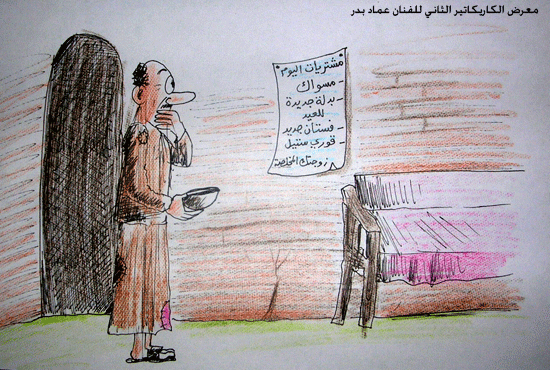 معرض الكاريكاتير الثاني للفنان عماد بدر
مشتريات اليوم
- مسواك
- بدلة جديدة
للعيد
- فستان جديد
- قوري ستيل
زوجتك المخلصة